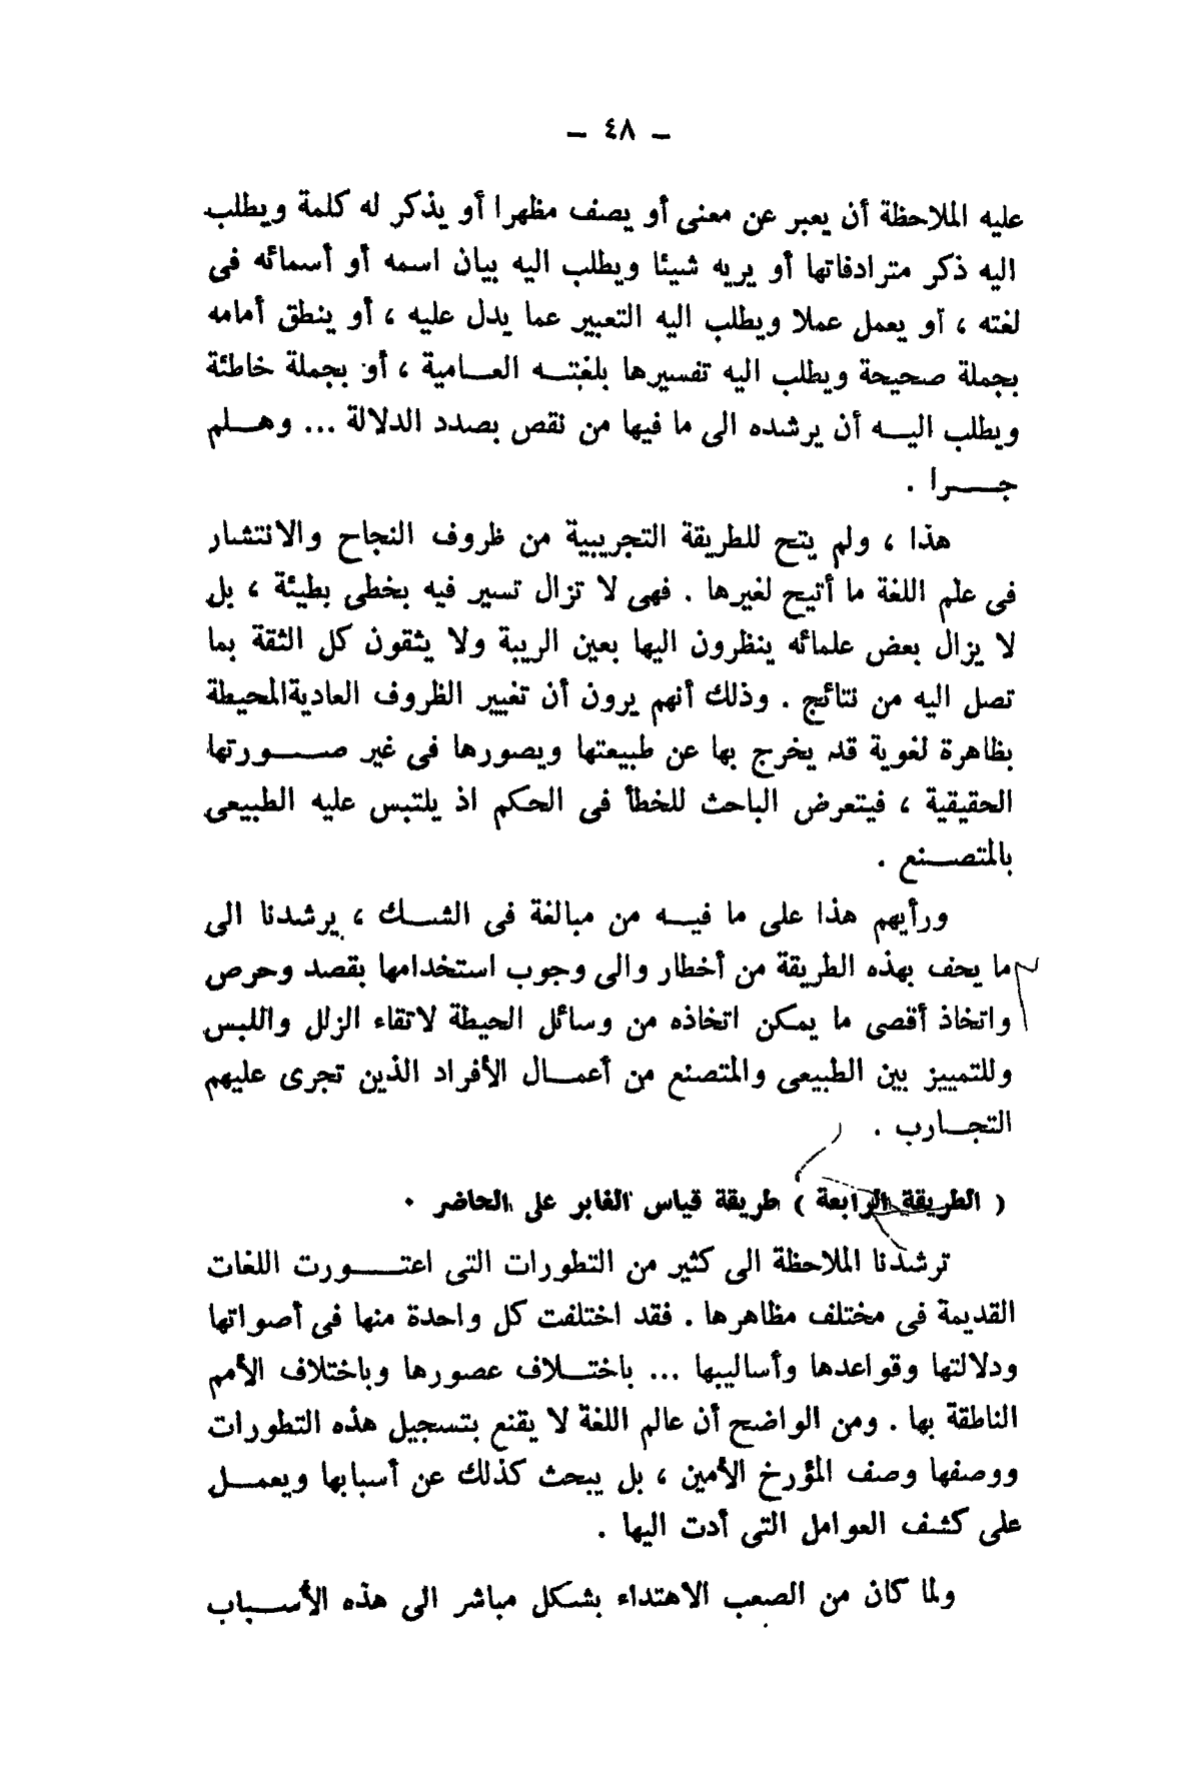 — ٤٨ —
عليه الملاحظة أن يعبر عن معنى أو يصف مظهرا أو يذكر له كلمة ويطلب
اليه ذكر مترادفاتها أو يريه شيئا ويطلب اليه بيان اسمه أو أسمائه فى
لغته ، أو يعمل عملا ويطلب اليه التعبير عما يدل عليه ، أو ينطق أمامه
بجملة صحيحة ويطلب اليه تفسيرها بلغته العامية ، أو بجملة خاطئة
ويطلب اليه أن يرشده الى ما فيها من نقص بصدد الدلالة ... وهلم
جرا .
هذا ، ولم يتح للطريقة التجريبية من ظروف النجاح والانتشار
فى علم اللغة ما أتيح لغيرها . فهى لا تزال تسير فيه بخطى بطيئة ، بل
لا يزال بعض علمائه ينظرون اليها بعين الريبة ولا يثقون كل الثقة بما
تصل اليه من نتائج . وذلك أنهم يرون أن تغيير الظروف العادية المحيطة
بظاهرة لغوية قد يخرج بها عن طبيعتها ويصورها فى غير صورتها
الحقيقية ، فيتعرض الباحث للخطأ فى الحكم اذ يلتبس عليه الطبيعى
بالمتصنع .
ورأيهم هذا على ما فيه من مبالغة فى الشك ، يرشدنا الى
ما يحف بهذه الطريقة من أخطار والى وجوب استخدامها بقصد وحرص
واتخاذ أقصى ما يمكن اتخاذه من وسائل الحيطة لاتقاء الزلل واللبس
وللتمييز بين الطبيعى والمتصنع من أعمال الأفراد الذين تجرى عليهم
التجارب .
( الطريقة الرابعة ) طريقة قياس الغابر على الحاضر .
ترشدنا الملاحظة الى كثير من التطورات التى اعتورت اللغات
القديمة فى مختلف مظاهرها . فقد اختلفت كل واحدة منها فى أصواتها
ودلالتها وقواعدها وأساليبها ... باختلاف عصورها وباختلاف الأمم
الناطقة بها . ومن الواضح أن عالم اللغة لا يقنع بتسجيل هذه التطورات
ووصفها وصف المؤرخ الأمين ، بل يبحث كذلك عن أسبابها ويعمل
على كشف العوامل التى أدت اليها .
ولما كان من الصعب الاهتداء بشكل مباشر الى هذه الأسباب